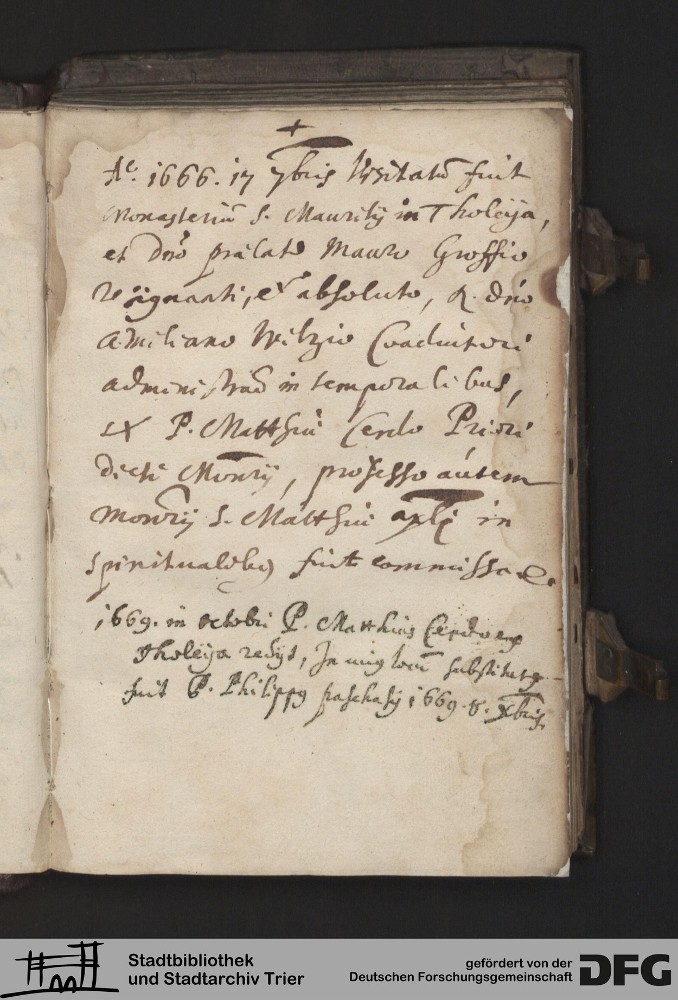 +
Aº. 1666. 17 7bris Visitatũ fuit
Monasteriũ S. Mauritij in Tholeÿa,
et Dnõ prælato Mauro Groffio
resignanti, et absoluto, R. dño
Æmiliano Wilzio Coadiutori
administraõ in temporalibus,
et P. Matthiæ Cerdo Priori
dicti Monrij, professo autem
monrij S. Matthiæ apli in
spiritualibus fuit commissa
1669. in octobri P. Matthias Cerdo ex
Tholeÿa redijt, In cuius locũ substitutus
fuit P. Philippus paschasij 1669. 8. Xbris
Stadtbibliothek
und Stadtarchiv Trier
gefördert von der
Deutschen Forschungsgemeinschaft
DFG